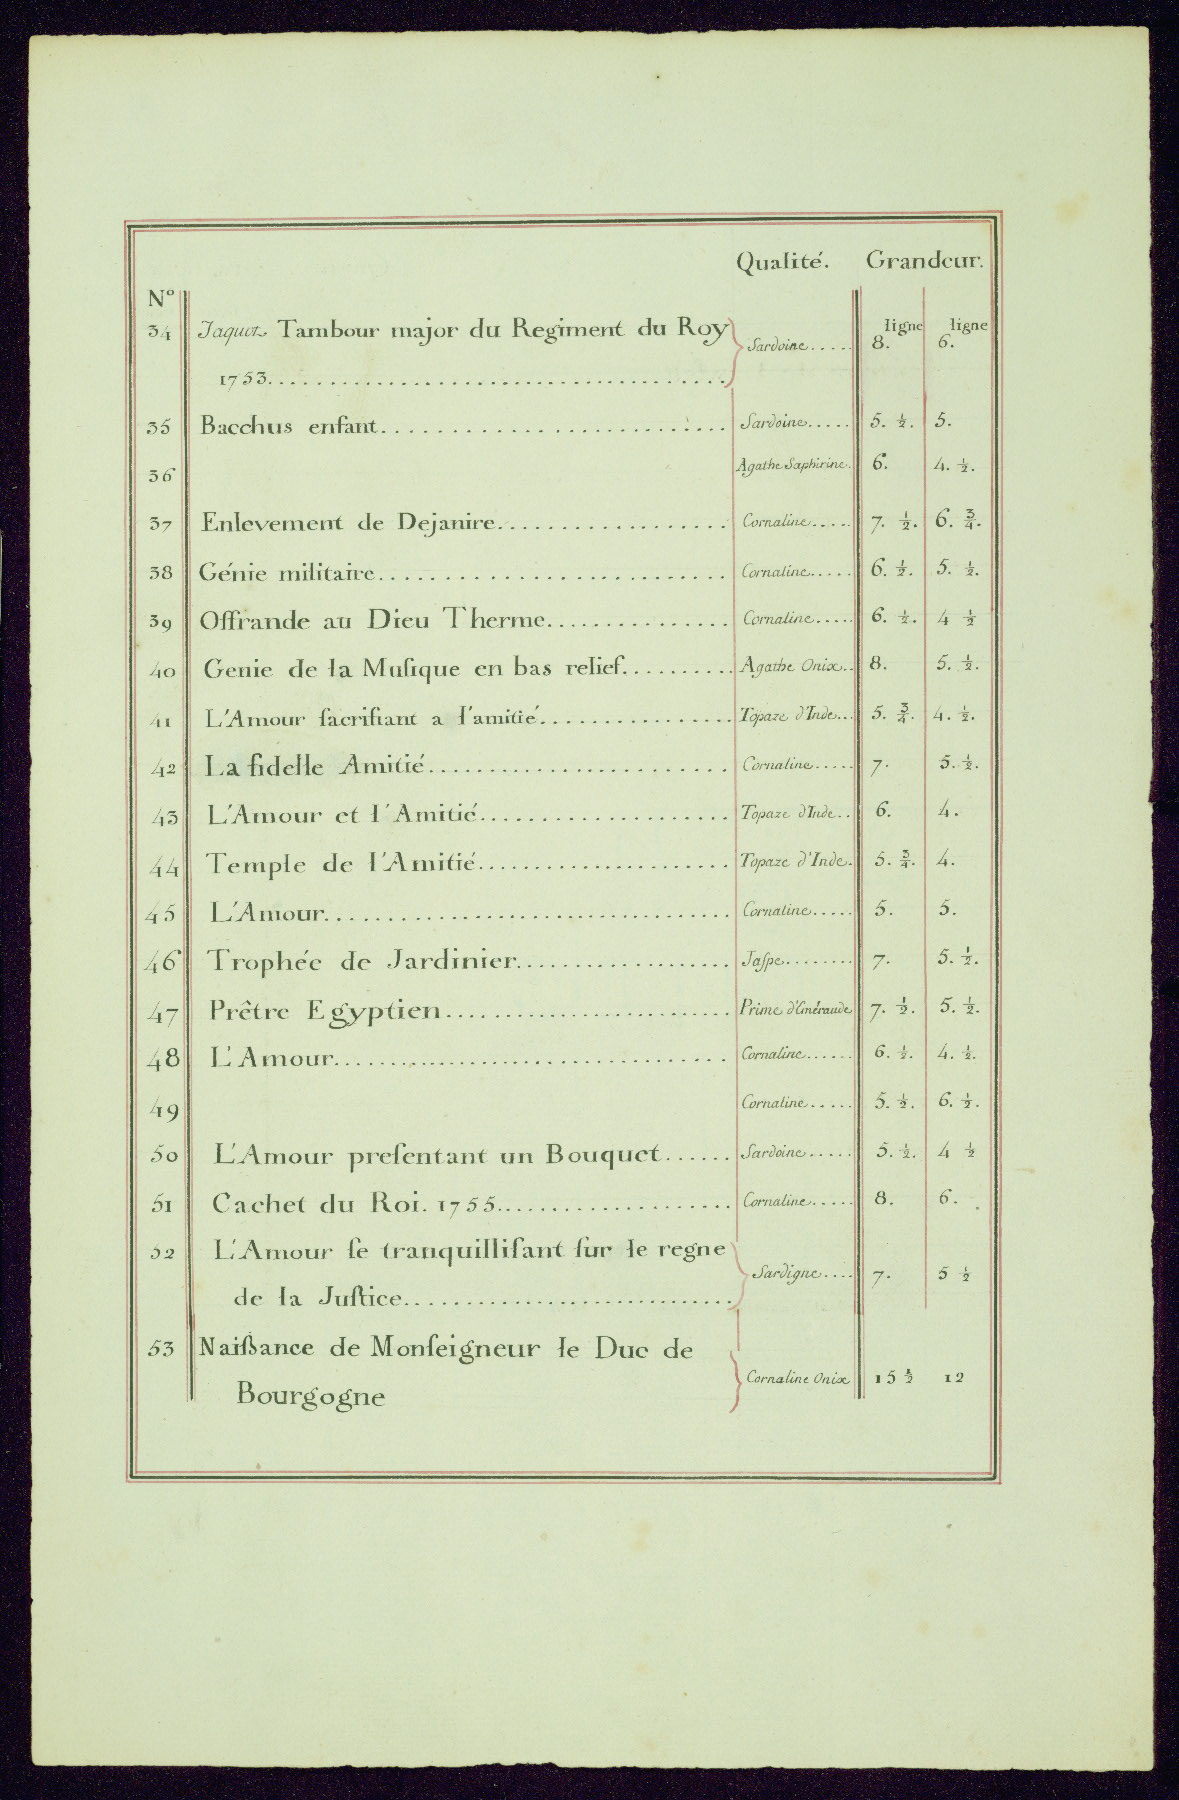 Qualité. Grandeur.
Nº
ligne ligne
34 Jaquot Tambour major du Regiment du Roy
1753. Sardoine..... 8. 6.
35 Bacchus enfant. Sardoine..... 5. ½. 5.
36 Agathe Saphirine. 6. 4. ½.
37 Enlevement de Dejanire. Cornaline..... 7. ½. 6. ¾.
38 Génie militaire. Cornaline..... 6. ½. 5. ½.
39 Offrande au Dieu Therme. Cornaline..... 6. ½. 4 ½
40 Genie de la Muſique en bas relief. Agathe Onix.. 8. 5. ½.
41 L'Amour ſacrifiant a l'amitié. Topaze d'Inde... 5. ¾. 4. ½.
42 La fidelle Amitié. Cornaline..... 7. 5. ½.
43 L'Amour et l'Amitié. Topaze d'Inde.. 6. 4.
44 Temple de l'Amitié. Topaze d'Inde. 5. ¾. 4.
45 L'Amour. Cornaline..... 5. 5.
46 Trophée de Jardinier. Jaſpe........ 7. 5. ½.
47 Prêtre Egyptien. Prime d'Emeraude 7. ½. 5. ½.
48 L'Amour. Cornaline...... 6. ½. 4. ½.
49 Cornaline..... 5. ½. 6. ½.
50 L'Amour preſentant un Bouquet...... Sardoine..... 5. ½. 4 ½
51 Cachet du Roi. 1755. Cornaline..... 8. 6.
52 L'Amour ſe tranquilliſant ſur le regne
de la Juſtice. Sardigne.... 7. 5 ½
53 Naiſsance de Monſeigneur le Duc de
Bourgogne Cornaline Onix 15 ½ 12